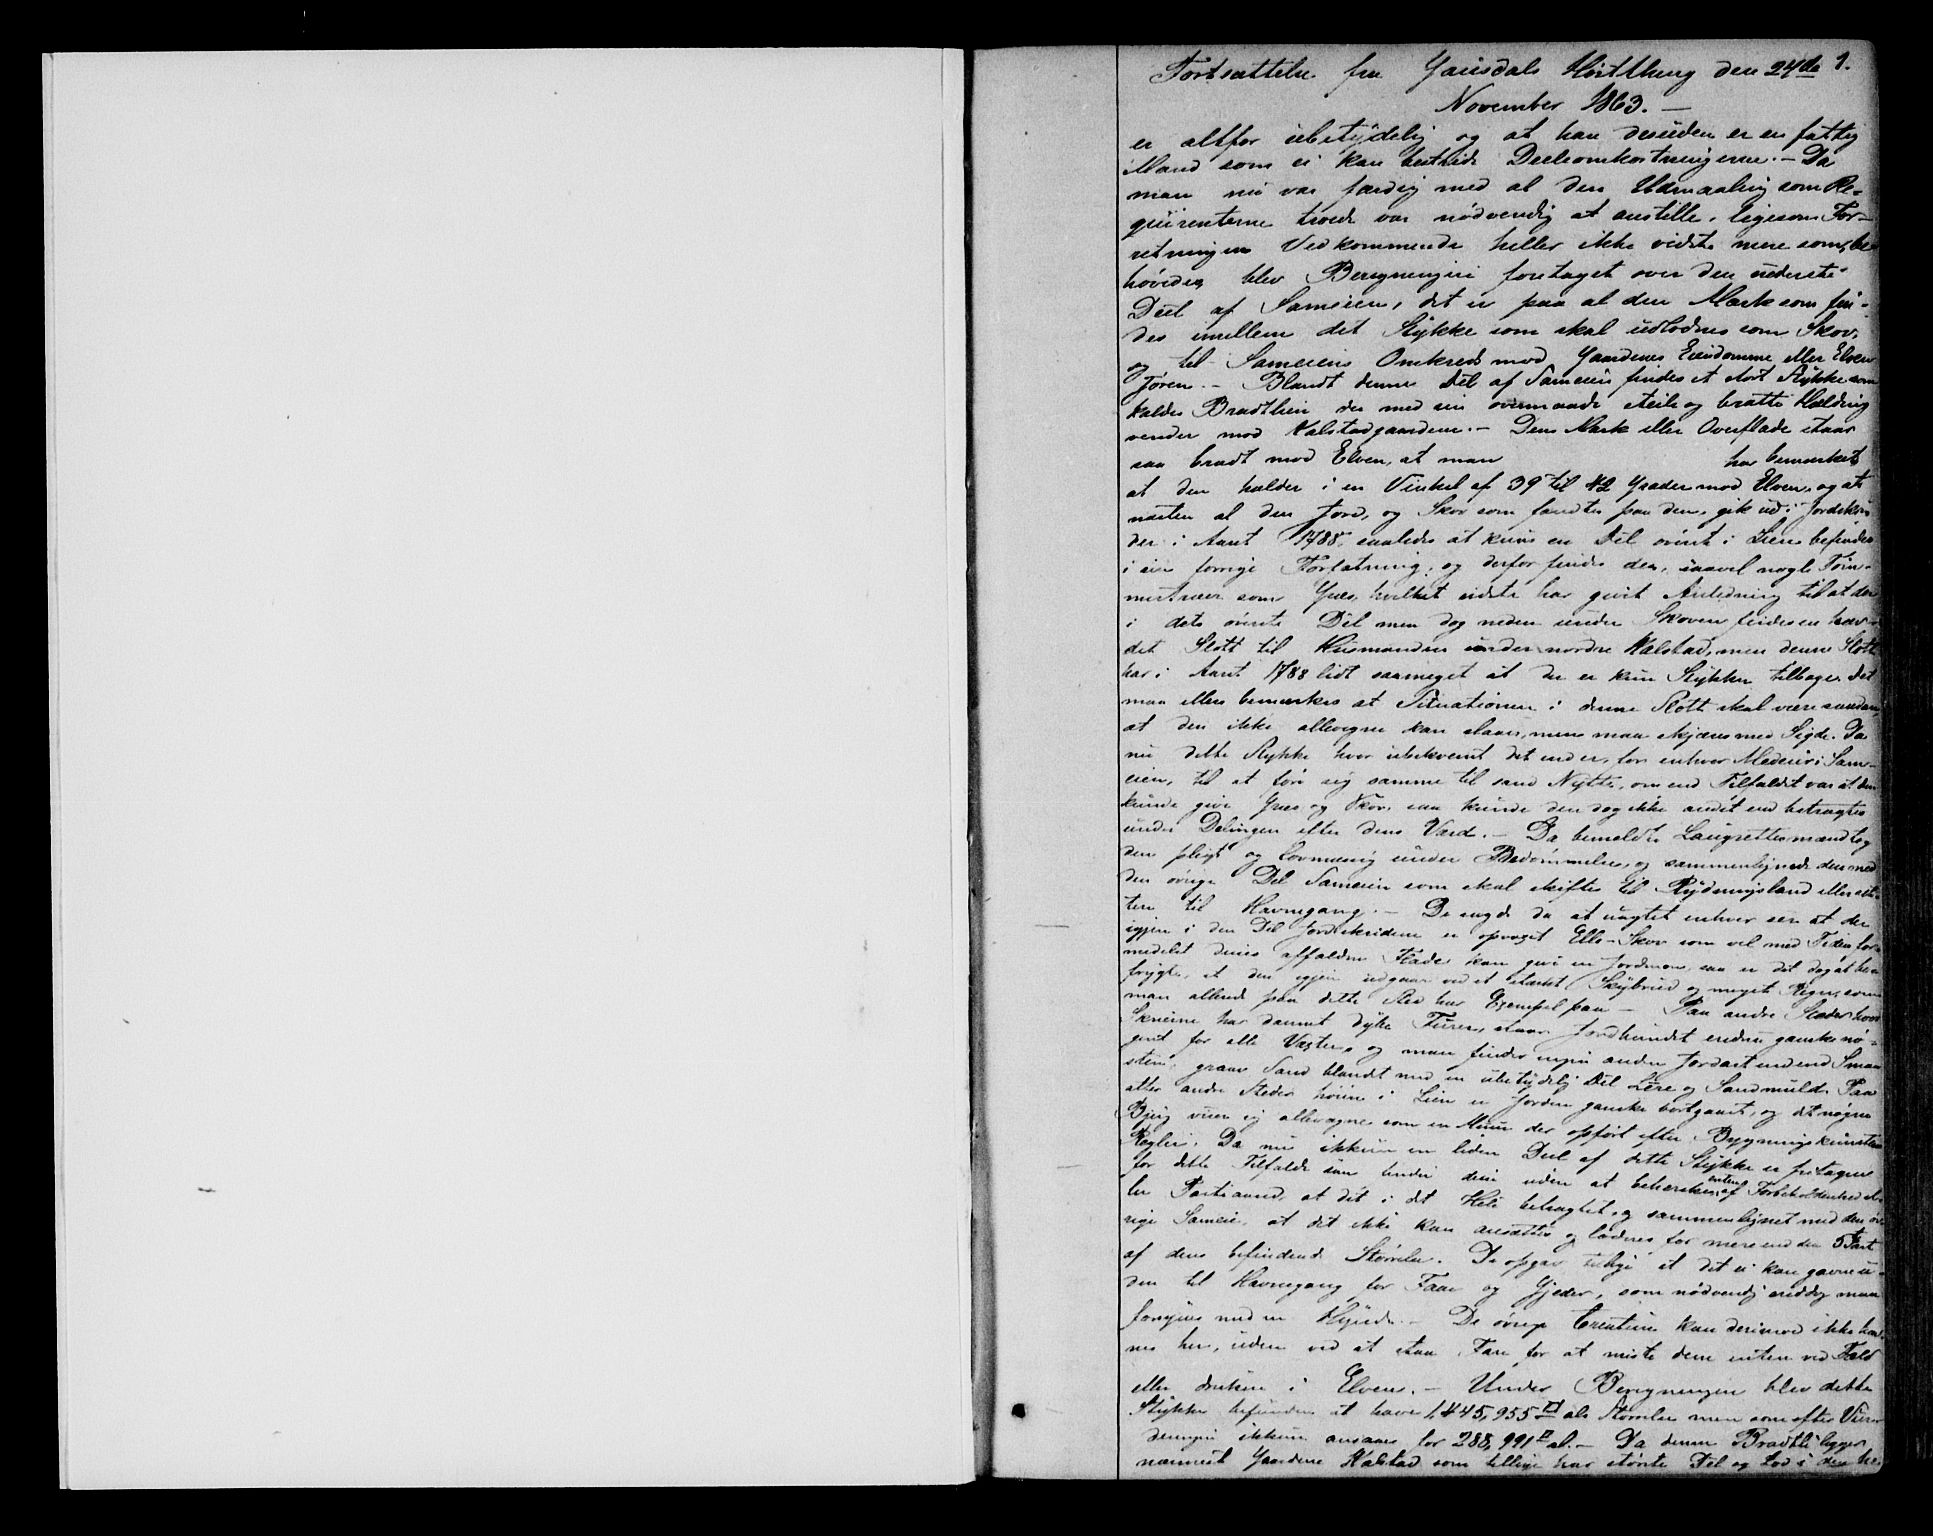 Fortsættelse fra Gausdals Høstthing den 24de 1.
November 1863. —
er altfor ubetydelig og at han desuden er en fattig
Mand som ei kan bestride Deelsomkostningerne. — Da
man nu var færdig med al den Udmaaling som Re-
quirenterne troede var nødvendig at anstille, ligesom For-
retningen Vedkommende heller ikke vidste mere som be
høvedes blev Beregningen foretaget over den underste
Deel af Sameien, det er paa al den Mark som fin-
des imellem det Stykke som skal udlodnes som Skov,
og til Sameiens Omkreds mod Gaardenes Eiendomme eller Elven
Jøren. — Blandt denne Del af Sameien findes et stort Stykke som
kaldes Bradtlien der med sin overmaade steile og bratte Hældning
vender mod Kalstadgaardene. — Dens Mark eller Overflade staar
saa bradt mod Elven, at man har bemærket
at den helder i en Vinkel af 39 til 42 Grader mod Elven, og at
næsten al den Jord, og Skov som fandtes paa den, gik ud i Jordskri
der i Aaret 1788 saaledes at kuns en Del øverst i Lien befindes
i sin forrige Forfatning, og derfor findes der, saavel nogle Töm-
mertræer som Græs, hvilket sidste har givet Anledning til at der
i dets øverste Del men dog neden under Skoven findes en hæv-
det Slott til Husmanden under nordre Kalstad, men denne Slott
har i Aaret 1788 lidt saameget at der er kun Stykker tilbage. Det
maa ellers bemærkes at Situationen i denne Slott skal være saadan,
at den ikke allevegne kan slaaes, men maa skjæres med Sigde. Da
nu dette Stykke hvor ubekvemt det end er, for enhver Medeier i Sam-
eien, til at føre sig samme til sand Nytte, om end Tilfældet var at den
kunde give Græs og Skov, saa kunde den dog ikke andet end betragtes
under Delingen efter dens Værd. — Da bemeldte Laugrettesmænd tog
den pligt og lovmæssig under Bedømmelse, og sammenlignede den med
den øvrige Del Sameie som skal skiftes til Rydningsland eller æt-
ten til Havnegang. — De sagde da at uagtet enhver ser at der
igjen i den Del Jordskridene er opvoxet Elle-Skov som vel med Tiden for-
medelst denes affaldne Blade kan give en Jordmon, saa er det dog at be-
frygte, at den igjen udgaar ved et stærkt Skybrud og meget Regn, som
man allerede paa dette Sted har Exempel paa — Paa andre Steder hvor
Skreiene har dannet dybe Furer, staar Jordbundet endnu ganske nø-
gent for alle Væxter, og man finder ingen anden Jordart end end Smaa
sten, graae Sand blandt med en ubetydelig Del Lere og Sandmuld. Paa
atter andre Steder høiere i Lien er Jorden ganske bortgaaet, og det nøgne
Bjerg viser sig allevegne som en Muur der opført efter Bygningskunstens
Regler. Da nu ikkun en liden Deel af dette Stykke er fritagne
for dette Tilfælde saa fandt disse uden at beherskes enten af Forbeholdenhed el-
ler Partiaand, at det i det Hele betragtet, og sammenlignet med den øv-
rige Sameie, at det ikke kan ansættes og lodnes for mere end den 5te Part
af dens befindende Størrelse. De opgav tillige at det ei kan gavne u-
den til Havnegang for Faar og Gjeder, som nødvendig endda maa
forsynes med en Hyrde. — De øvrige Creature kan derimod ikke hav-
nes her, uden ved at staa Fare for at miste dem enten ved Fald
eller drukne i Elven. — Under Beregningen blev dette
Stykke befunden at have 1,445,955 □ al. Størrelse men som efter Vur-
deringen ikkun ansaaes for 288,991 □ al. — Da denne Bradtli ligger
nærmest Gaardene Kalstad som tillige har største Del og Lod i den he-